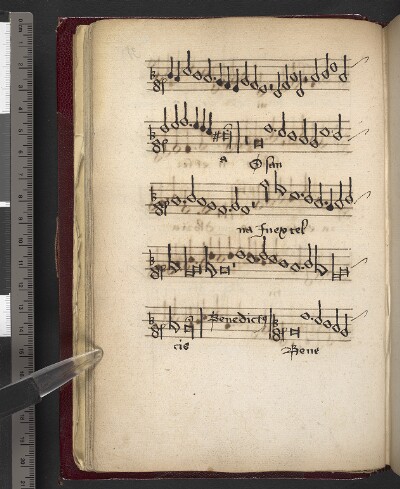 a O san
na Inexcel
Benedictus
cis Bene